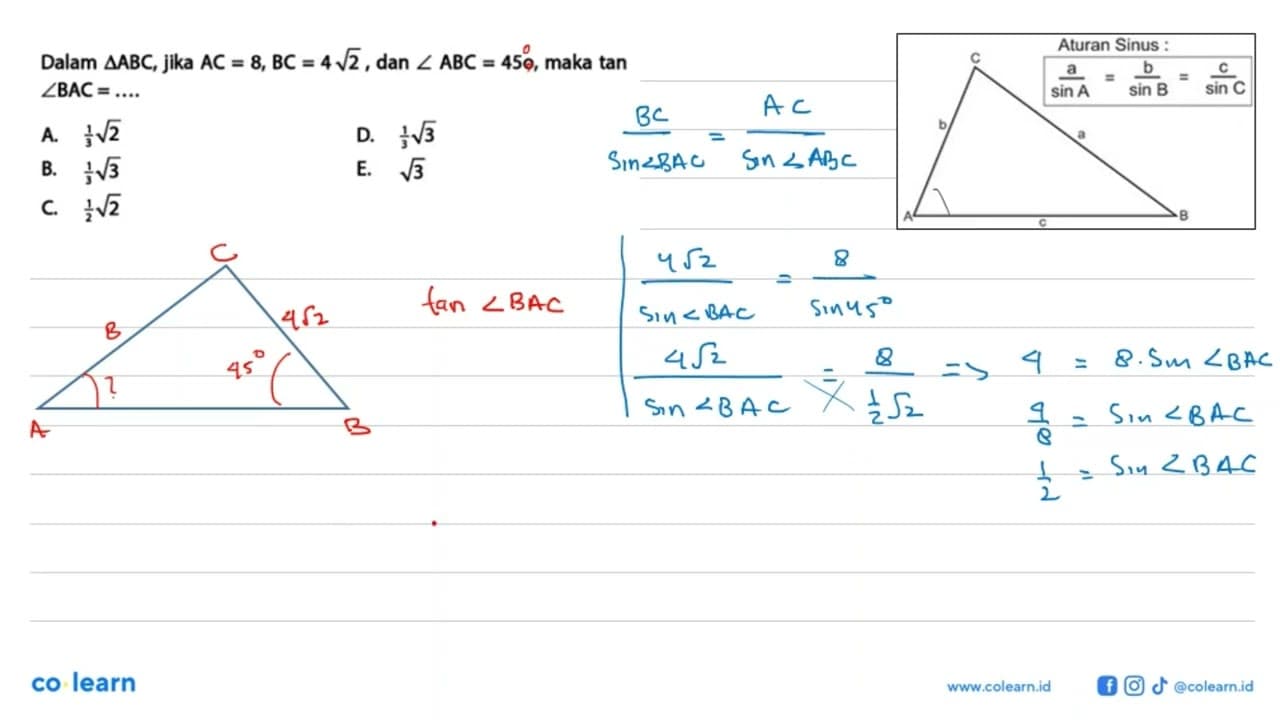 Dalam ΔABC, jika AC = 8, BC = 4√2, dan ∠ ABC = 45°, maka tan
∠BAC = ....
A. 1/3 √2
B. 1/3 √3
C. 1/2 √2
D. 1/3 √3
E. √3
BC / Sin∠BAC = AC / Sin ∠ABC
Aturan Sinus :
a / sin A = b / sin B = c / sin C
C
b
a
A
c
B
C
B
4√2
45°
?
A
B
tan ∠BAC
4√2 / Sin∠BAC = 8 / Sin45°
4√2 / Sin ∠BAC = 8 / 1/2 √2 => 4 = 8 . Sin ∠BAC
4/8 = Sin ∠BAC
1/2 = Sin ∠BAC
co learn
www.colearn.id
@colearn.id